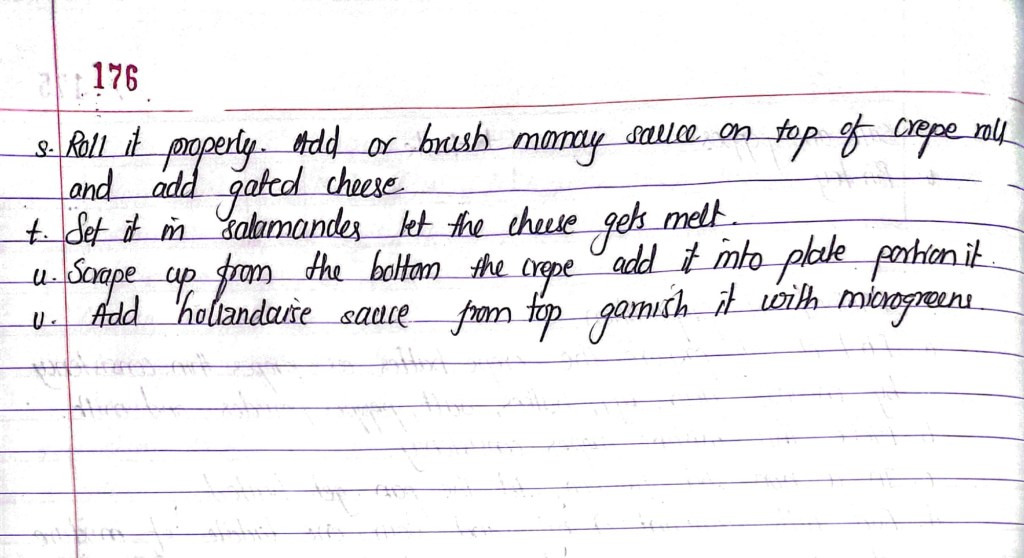 176
s. Roll it properly. Add or brush mornay sauce on top of crepe roll
and add gated cheese
t. Set it in salamander let the cheese gets melt.
u. Scrape up from the bottom the crepe add it into plate portion it.
v. Add hollandaise sauce from top garnish it with microgreens